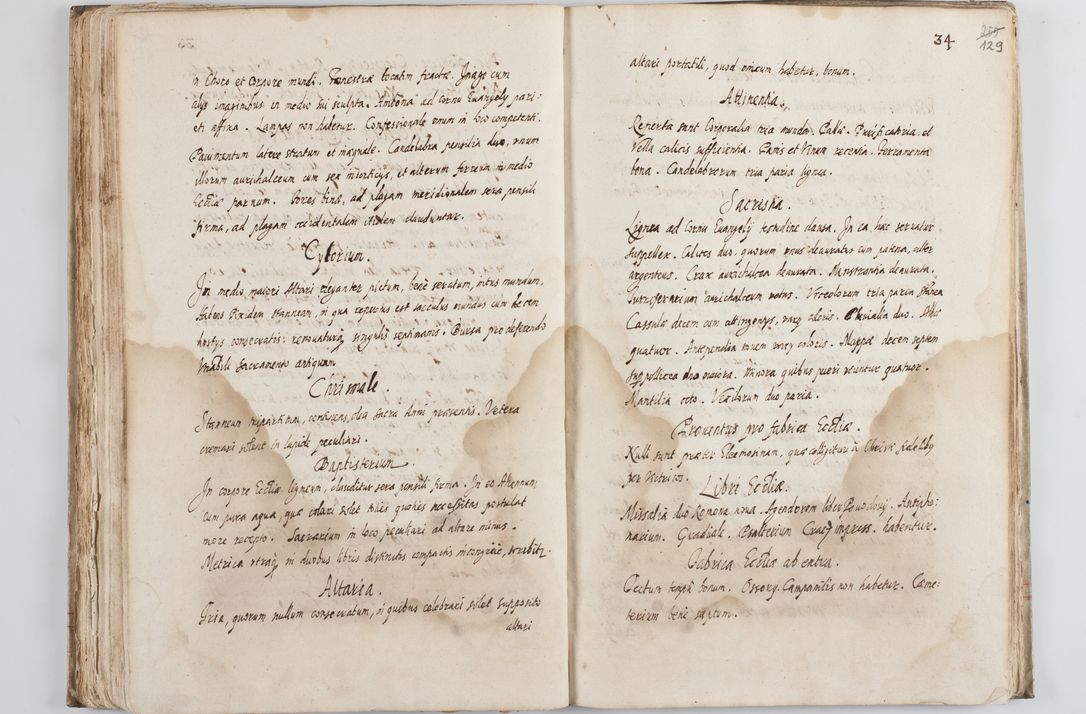 in Choro et Corpore mundi. Fenestræ locatim fractæ. Imago cum
alijs imaginibus in medio sui sculpta. Ambona ad cornu Euangelij pari:
eti affixa. Lampas non habetur. Confessionale vnum in loco competenti.
Pauimentum latere stratum et inæquale. Candelabra pensilia duo, vnum
illorum aurichalceum cum sex, et alterum ferreum in medio
Ecclīæ paruum. Fores binæ, ad plagam meridionalem sera pensili
firma, ad plagam occidentalem itidem clauduntur.
Cyborium.
In medio maiori Altari eleganter pictum, benè seratum, intus mundum,
habens Pixidem stanneam, in qua repertus est sacculus mundus cum decem
hostijs consecratis: renouaturq singulis septimanis. Bursa pro deferendo
Venerabili Sacramento antiquum.
Chrismale.
Stanneum tripartitum, continens olea sacra Anni præsentis. Vetera
cremari solent in lapide peculiari.
Baptisterium
In corpore Ecclīæ ligneum, clauditur sera pensili firma. In eo Ahennum
cum pura aqua, quæ colari solet toties quoties necessitas postulat
more recepto. Sacrarium in loco peculiari ad altare minus.
Metrica utraq in duobus libris distinctis compactis incongruè, scribitr.
Altaria.
Tria, quorum nullum consecratum, in quibus celebrari solet supposito
altari
34
255
129
altari portatili, quod vnicum habetur, bonum.
Attinentia.
Reperta sunt Corporalia tria munda. Pallæ. Purificatoria, et
Vella calicis sufficientia. Panis et Vinum recentia. Ferramenta
bona. Candelabrorum tria paria lignea.
Sacristia.
Lignea ad Cornu Euangelij testudine clausa. In ea hæc seruatur
supellex. Calices duo, quorum vnus deauratus cum patena, alter
argenteus. Crux aurichalcea deaurata. Monstrantia deaurata.
Turriferarium aurichalceum vetus. Vrceolorum tria paria stannea
Casulæ decem cum attinentijs, varij coloris. Pluuialia duo. Albæ
quatuor. Antependia nouem varij coloris. Mappæ decem septem
Superpellicea duo maiora. Minora quibus pueri vtuntur quatuor.
Mantilia octo. Vexillorum duo paria.
Prouentus pro fabrica Ecclīæ.
Nulli sunt præter Eleemosinam, quæ colligitur à Christi fidelibus
per Vitricos.
Libri Ecclīæ.
Missalia duo Romana noua. Agendorum liber Antipho:
narium. Graduale. Psalterium Cracouiæ impress. habentur.
Fabrica Ecclīæ ab extra.
Tectum templi bonum. Campanilis non habetur. Cæme:
terium benè septum.